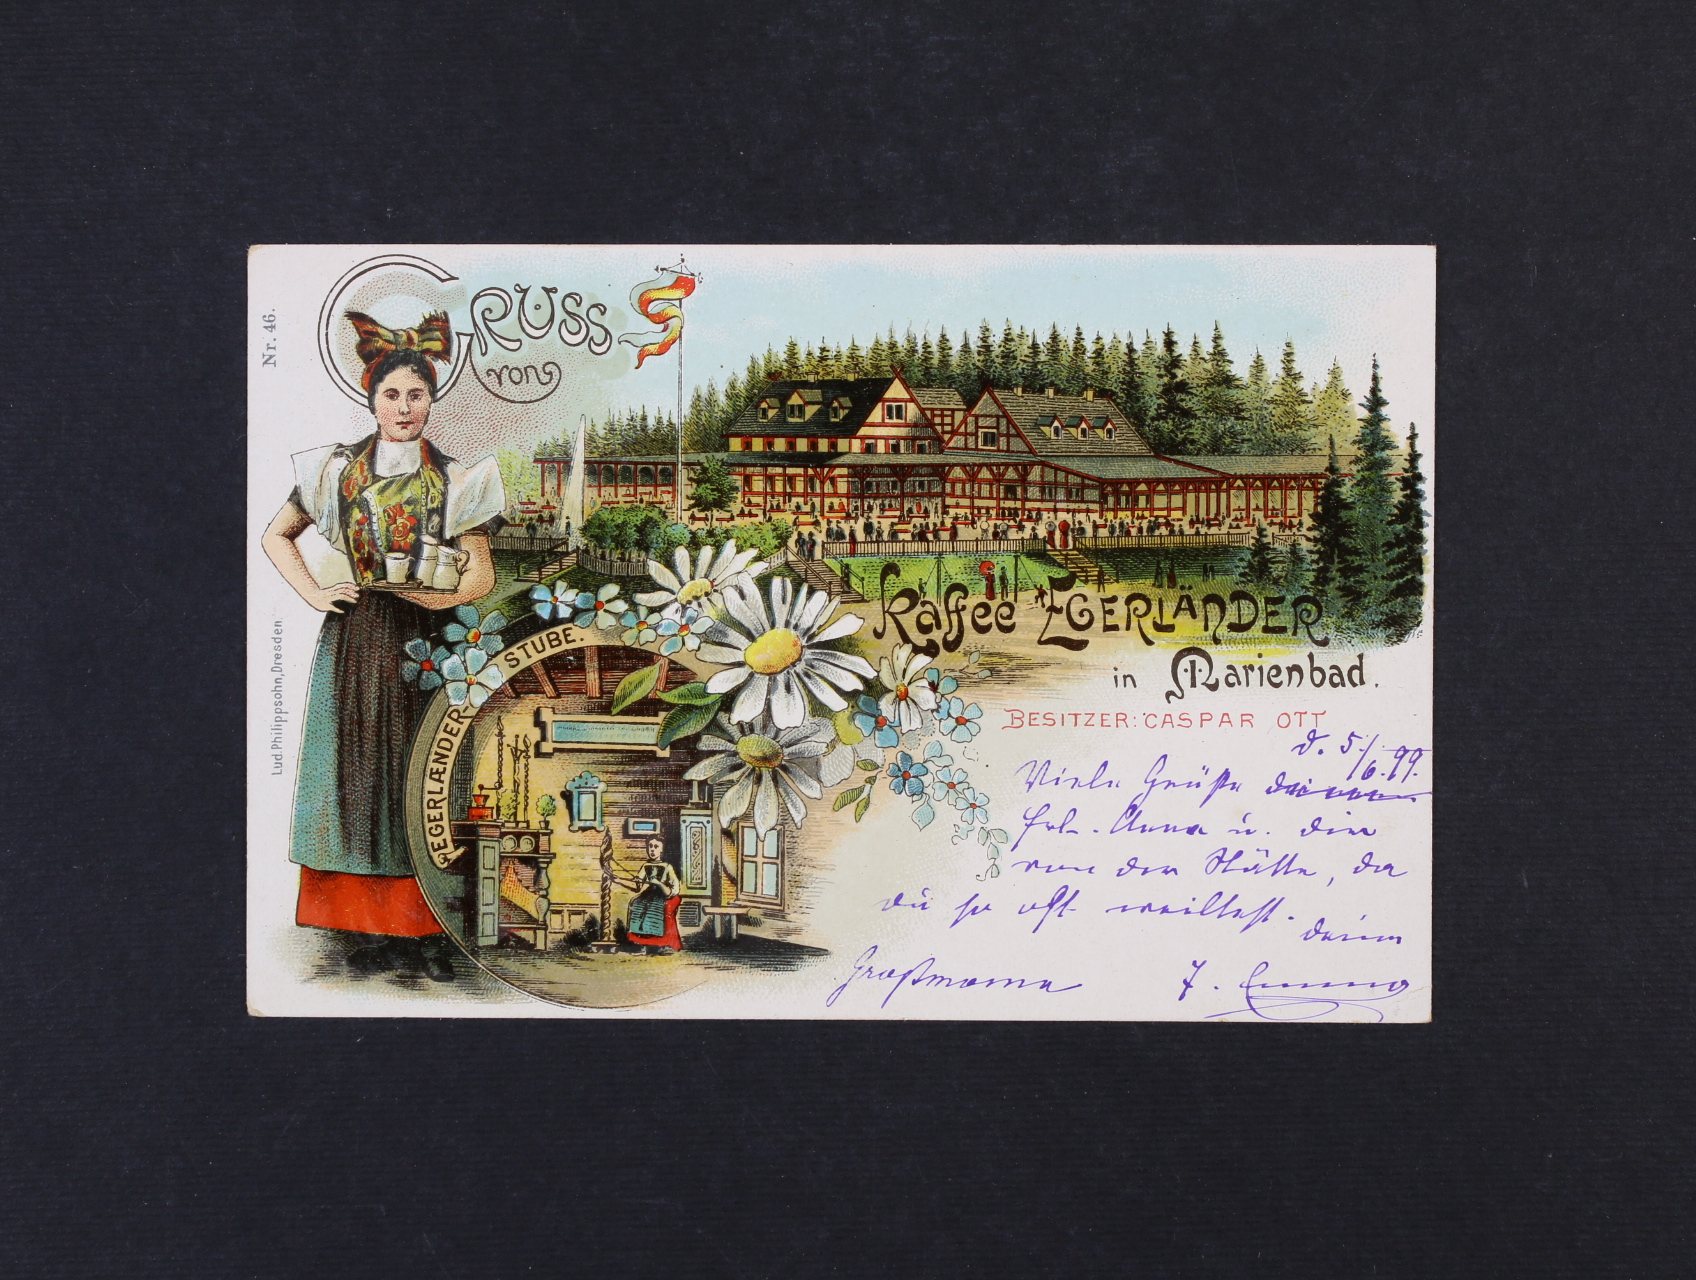 Nr. 46.
GRUSS
vom
Kaffee EGERLÄNDER
in Marienbad.
BESITZER: CASPAR OTT
EGERLÆNDER-STUBE.
Lud. Philippsohn, Dresden.
d. 5/6.99.
Viele Grüße
Frl. Anna u. Dir
von der Stätte, da
Du so oft weiltest.
Deine
Großmama F. Emma